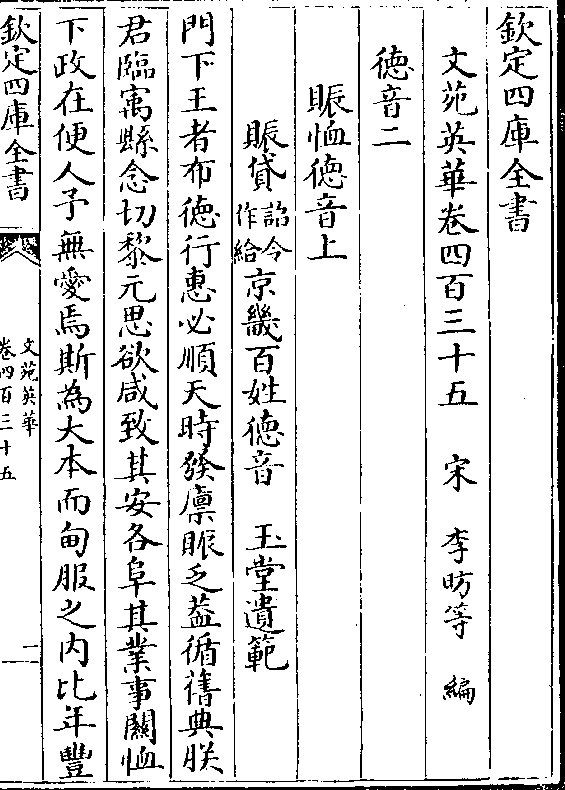 欽定四庫全書
文苑英華卷四百三十五 宋 李昉等 編
德音二
賑恤德音上
賑貸詔令作給京畿百姓德音 玉堂遺範
門下王者布德行惠必順天時發廪賑乏葢循舊典朕
君臨寓縣念切黎元思欲咸致其安各阜其業事關恤
下政在便人予無愛焉斯為大本而甸服之内比年豐
欽定四庫全書
文苑英華
卷四百三十五
一